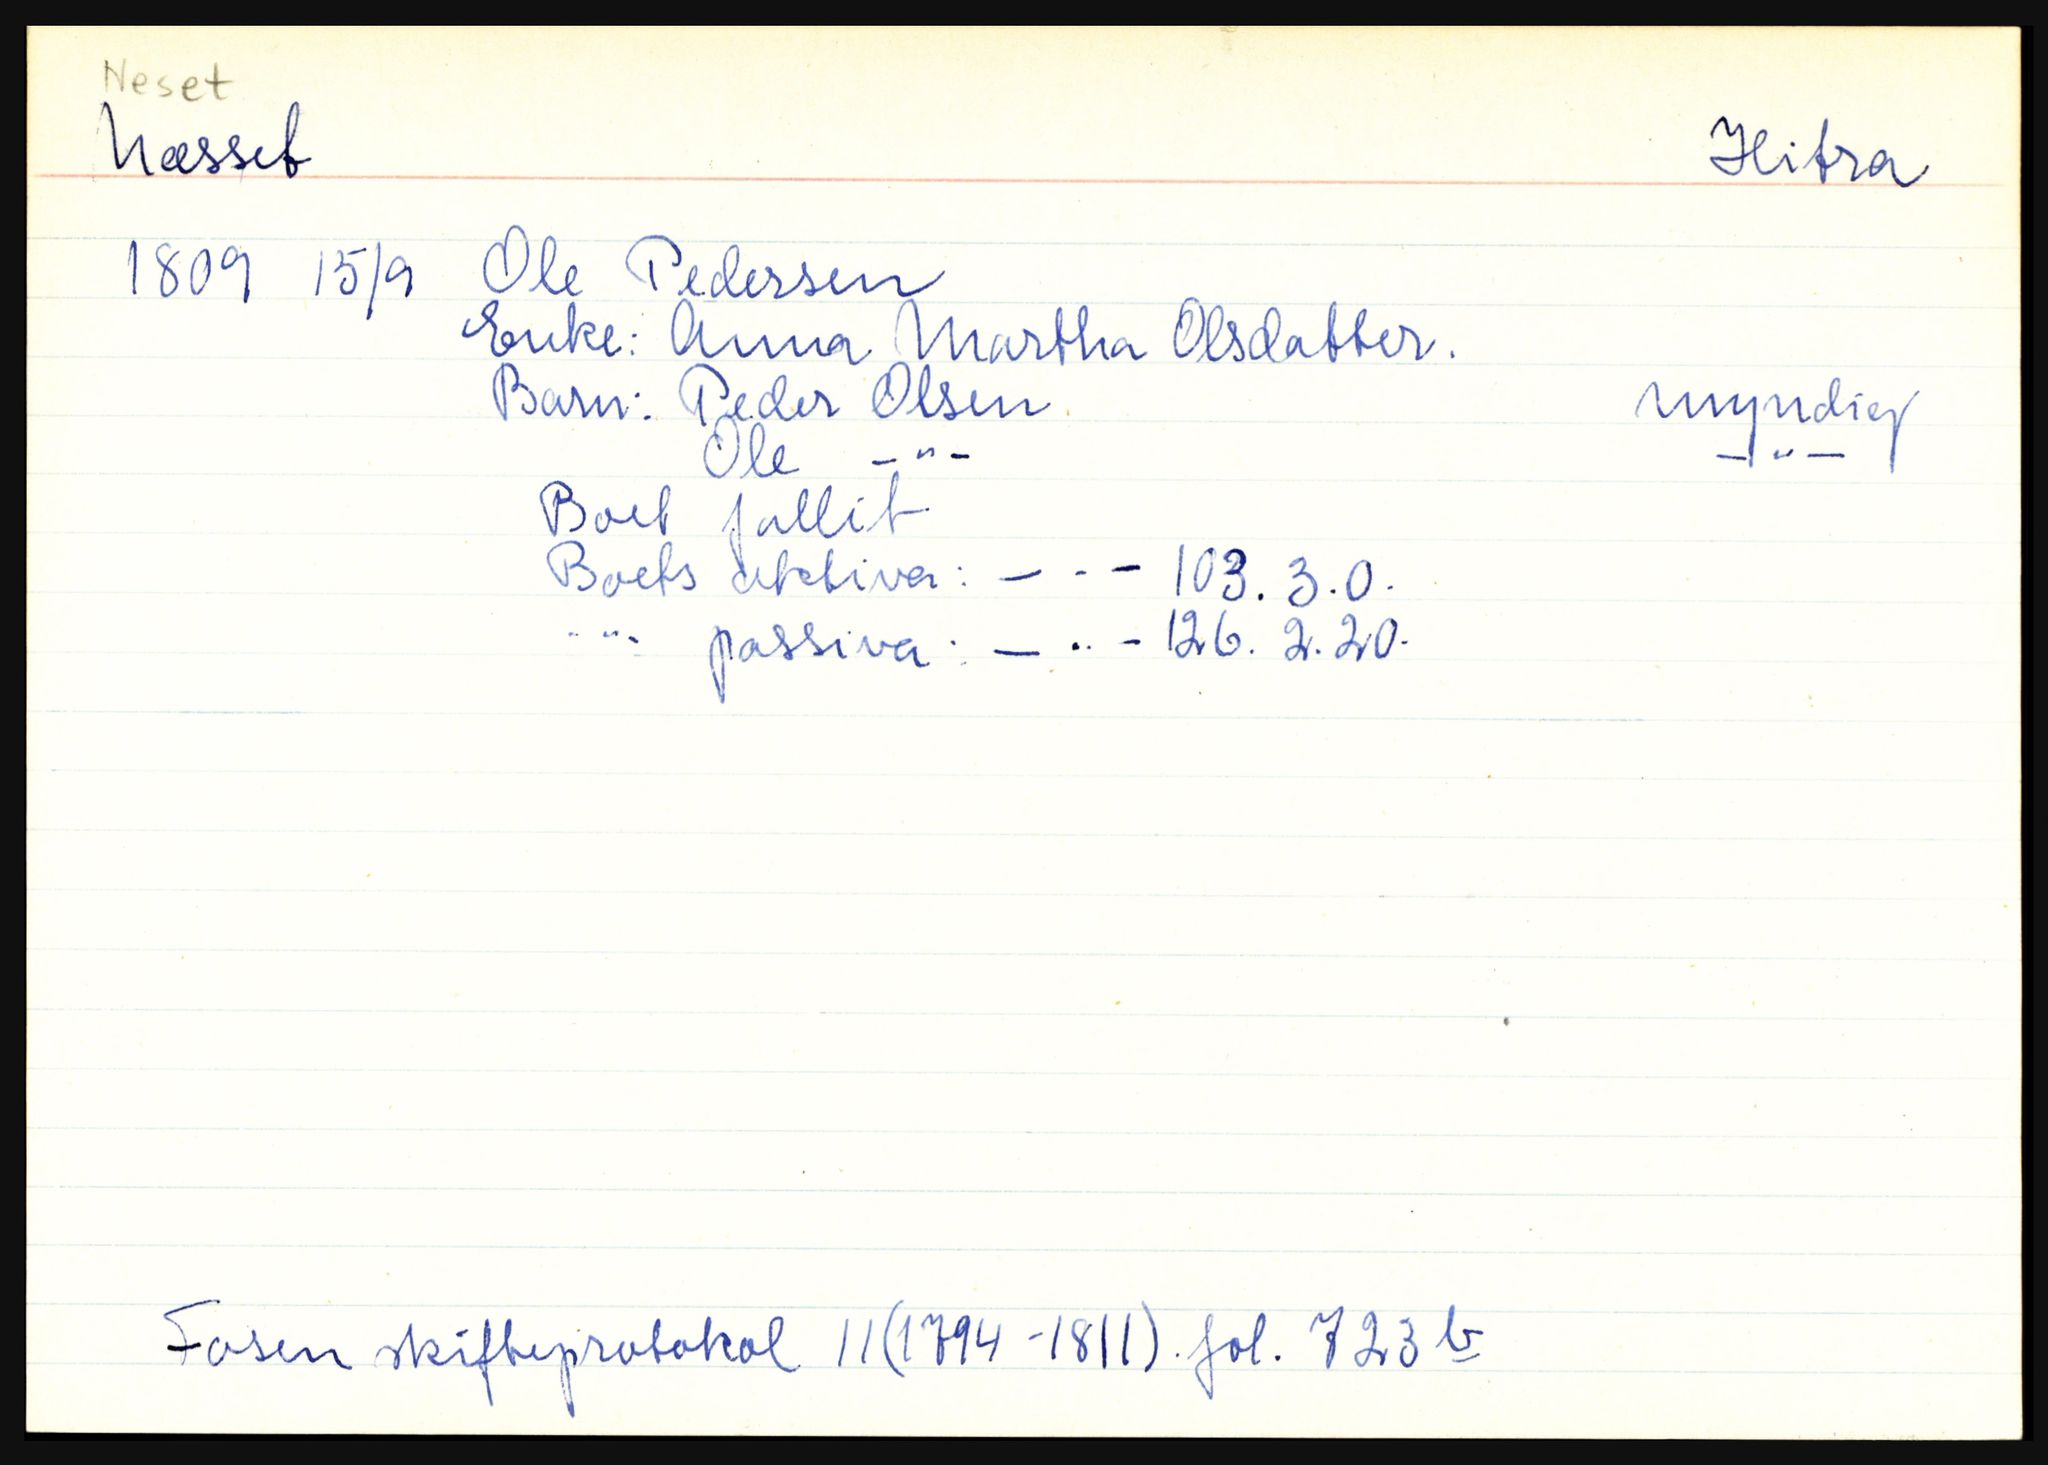 Neset
Næsset Hitra
1809 15/9 Ole Pedersen
Enke: Anna Martha Olsdatter.
Barn: Peder Olsen myndig
Ole -"- -"-
Boet fallit
Boets aktiva: - - - 103. 3. 0.
-"- passiva: - .. - 126. 2. 20.
Fosen skifteprotokol 11 (1794-1811). fol. 723 b